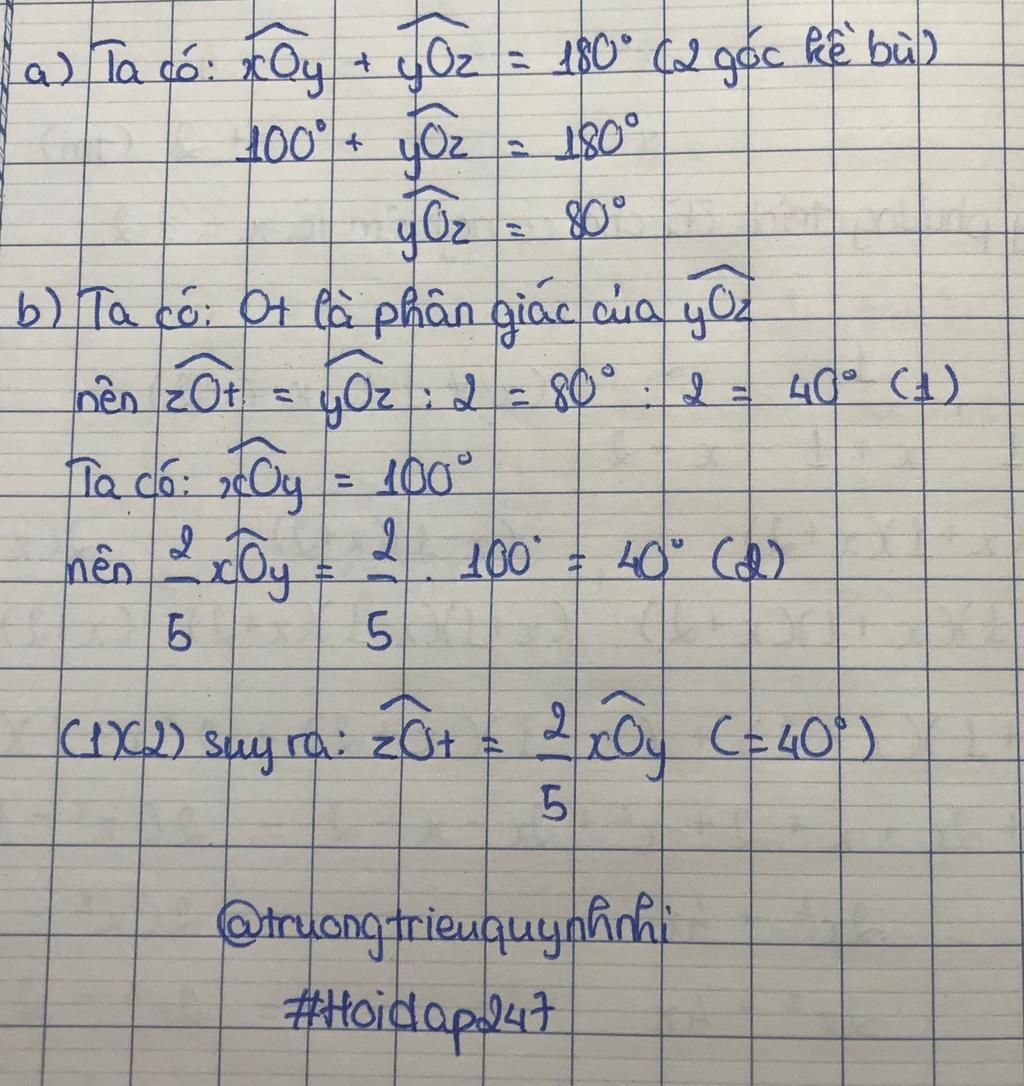 a) Ta có: xOy + yOz = 180° (2 góc kề bù)
100° + yOz = 180°
yOz = 80°
b) Ta có: Ot là phân giác của yOz
nên zOt = yOz : 2 = 80° : 2 = 40° (1)
Ta có: xOy = 100°
nên 2/5 xOy = 2/5 . 100° = 40° (2)
(1)(2) suy ra: zOt = 2/5 xOy (=40°)
@truongtrieuquynhnhi
#Hoidap247